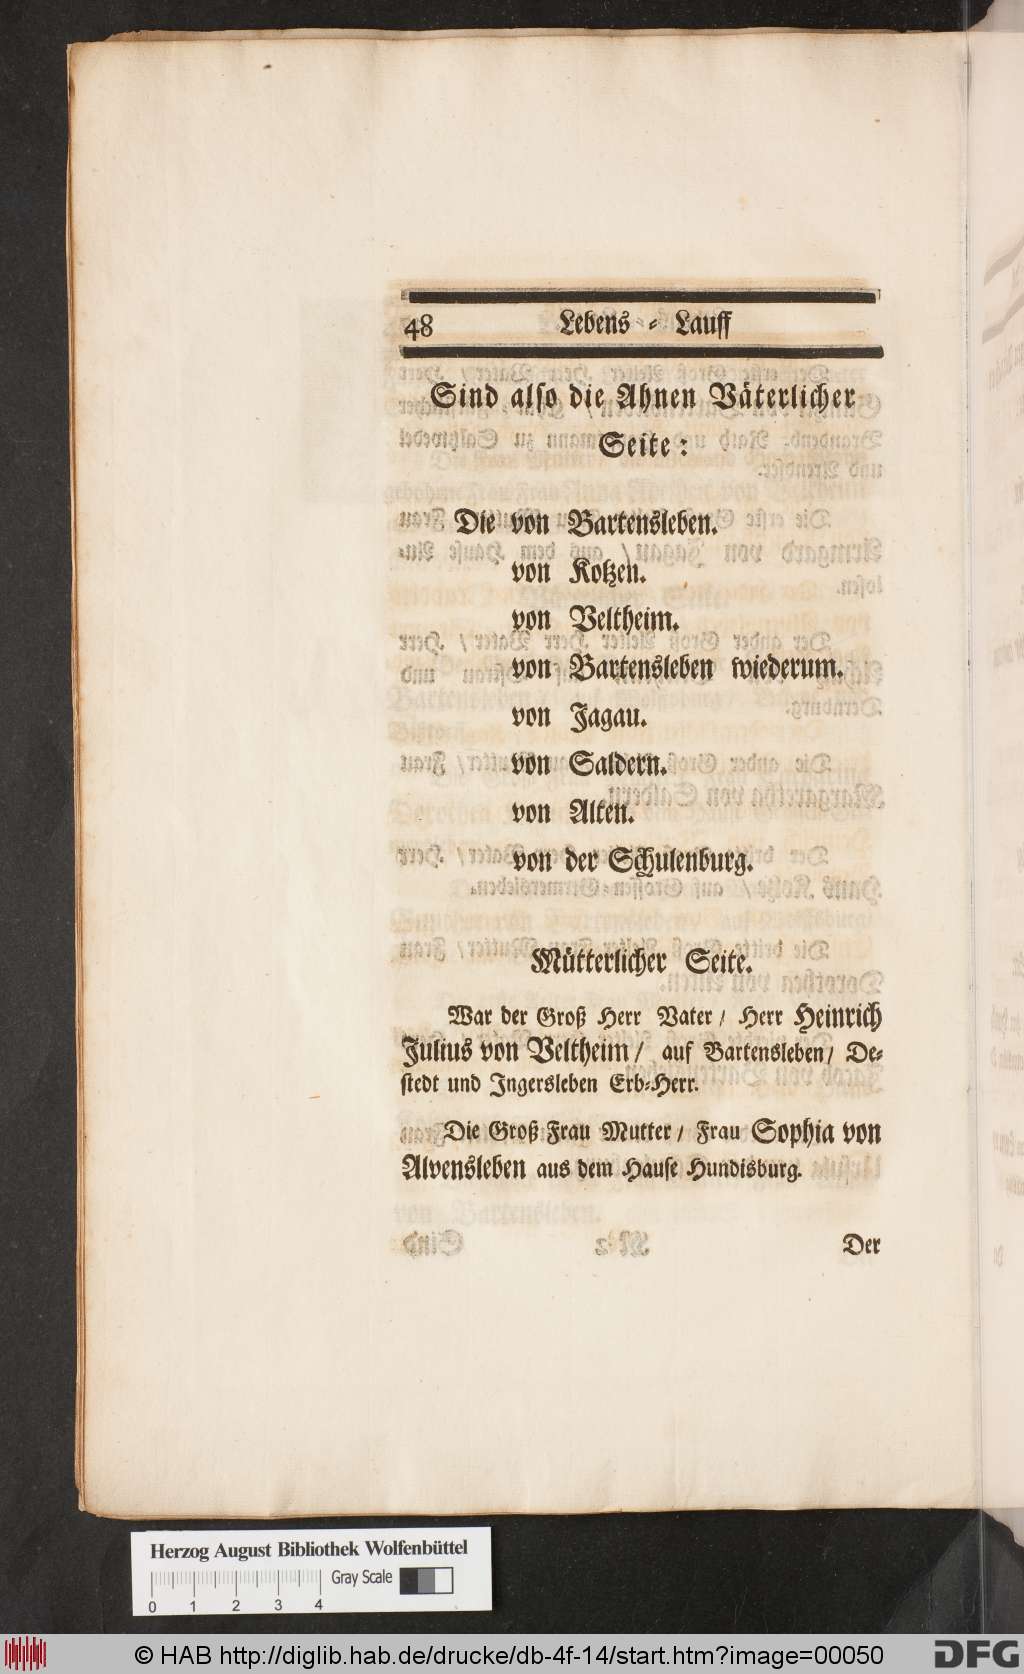 48 Lebens-Lauff
Sind also die Ahnen Väterlicher
Seite:
Die von Bartensleben.
von Kotzen.
von Veltheim.
von Bartensleben wiederum.
von Jagau.
von Saldern.
von Alten.
von der Schulenburg.
Mütterlicher Seite.
War der Groß Herr Vater/ Herr Heinrich
Julius von Veltheim/ auf Bartensleben/ De-
stedt und Ingersleben Erb-Herr.
Die Groß Frau Mutter/ Frau Sophia von
Alvensleben aus dem Hause Hundisburg.
Der
Herzog August Bibliothek Wolfenbüttel
Gray Scale
0 1 2 3 4
© HAB http://diglib.hab.de/drucke/db-4f-14/start.htm?image=00050
DFG